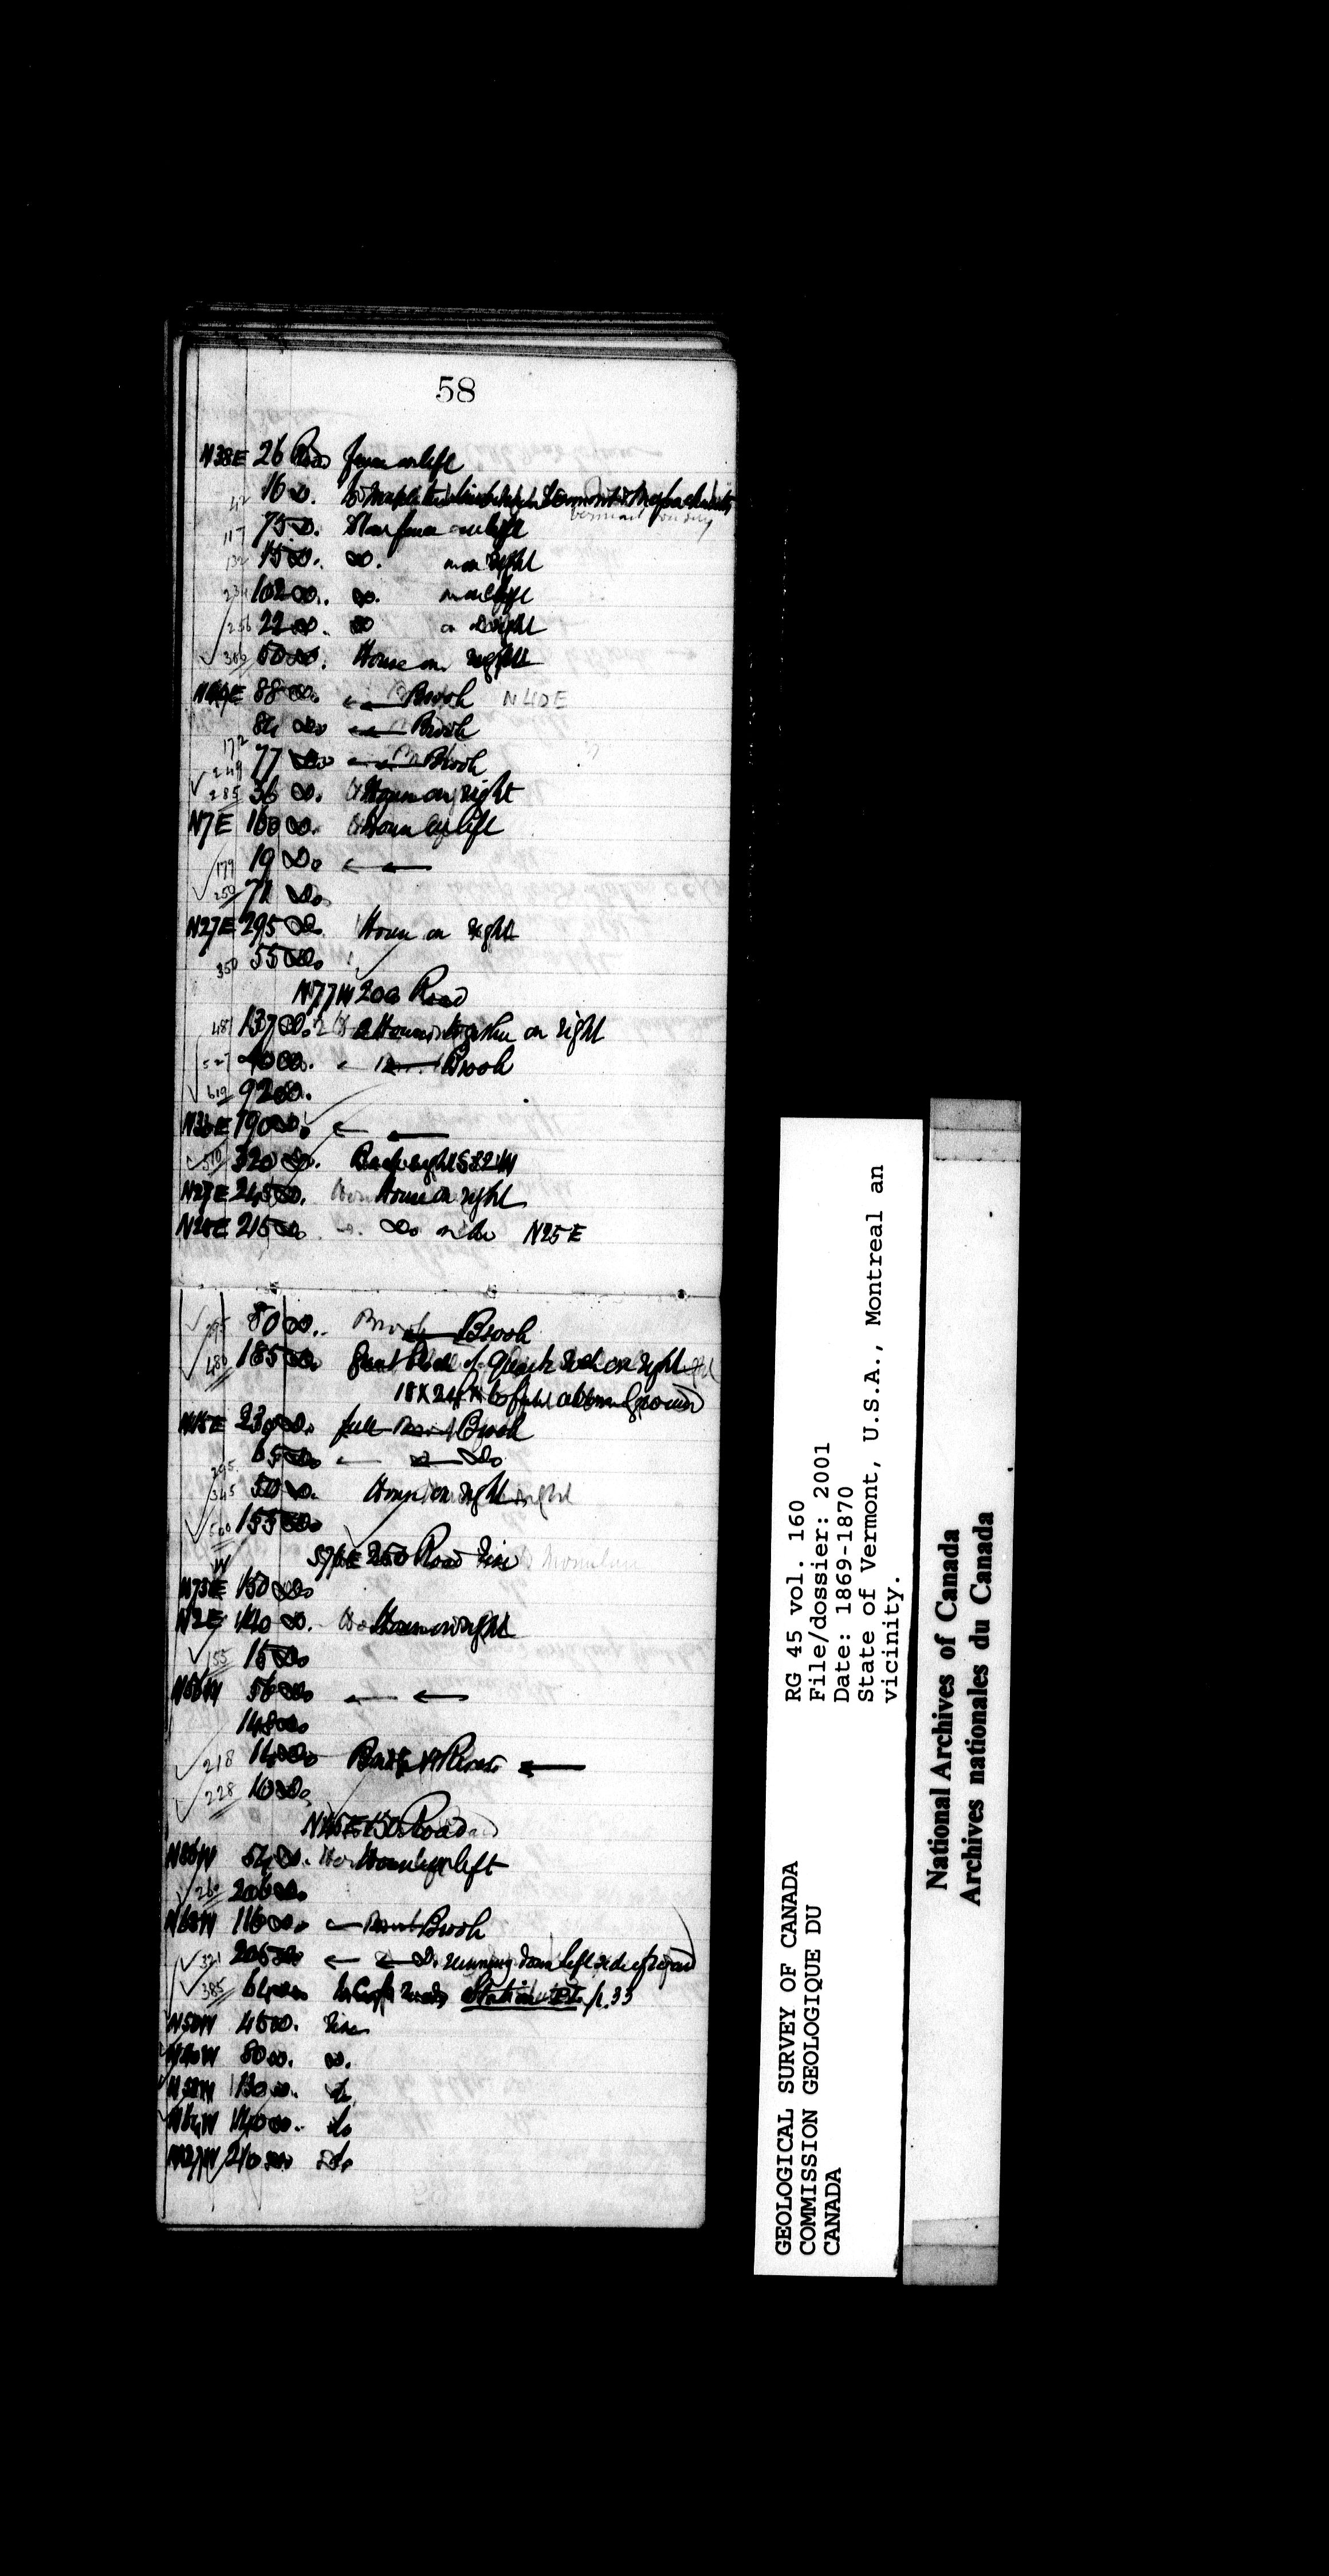 58
N38E 26 Road fence on left
42 16 Do. to Maple tree line between Vermont &
Vermont boundary
117 75 Do. Stone fence on left
132 15 Do. Do. on right
234 102 Do. Do. on left
256 22 Do. Do on right
306 50 Do. House on right
88 Do. ← Brook N40E
84 Do ← Brook
172
249 77 Do ← Brook
285 36 Do. House on right
N7E 160 Do. House left
179 19 Do ←
250 71 Do
N27E 295 Do. House on right
350 55 Do
N77W 200 Road
487 137 Do. 2 Houses together on right
527 40 Do. ← Brook
619 92 Do.
190 Do ←
510 320 Do. Back sight
N27E 245 Do. House on right
215 Do Do on Do N25E
295 80 Do. ← Brook
480 185 Do Great Block of Quartz Rock on right
18 X 24 X 6 feet above ground
N15E 230 Do. Brook
295 65 Do ← Do
345 50 Do. House on right
500 155 Do
250 Road
W
N73E 150 Do
N2E 140 Do. House on right
155 15 Do
N56W 56 Do ←
148 Do
218 14 Do River ←
228 10 Do
Road
N86W 54 Do. House left
260 206 Do
N62W 116 Do. ← Brook
321 205 Do ← Do. running down left side of road
385 64 Do to Cross roads Station p. 33
N50W 45 Do. Rise
80 Do. Do.
130 Do. Do
140 Do. Do
210 Do Do
GEOLOGICAL SURVEY OF CANADA
COMMISSION GEOLOGIQUE DU
CANADA
RG 45 vol. 160
File/dossier: 2001
Date: 1869-1870
State of Vermont, U.S.A., Montreal an
vicinity.
National Archives of Canada
Archives nationales du Canada